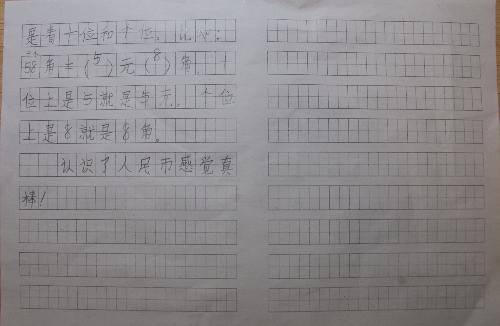 是看十位和个位。比如:
58角=(5)元(8)角。十
位上是5就是5元。个位
上是8就是8角。
认识了人民币感觉真
棒!